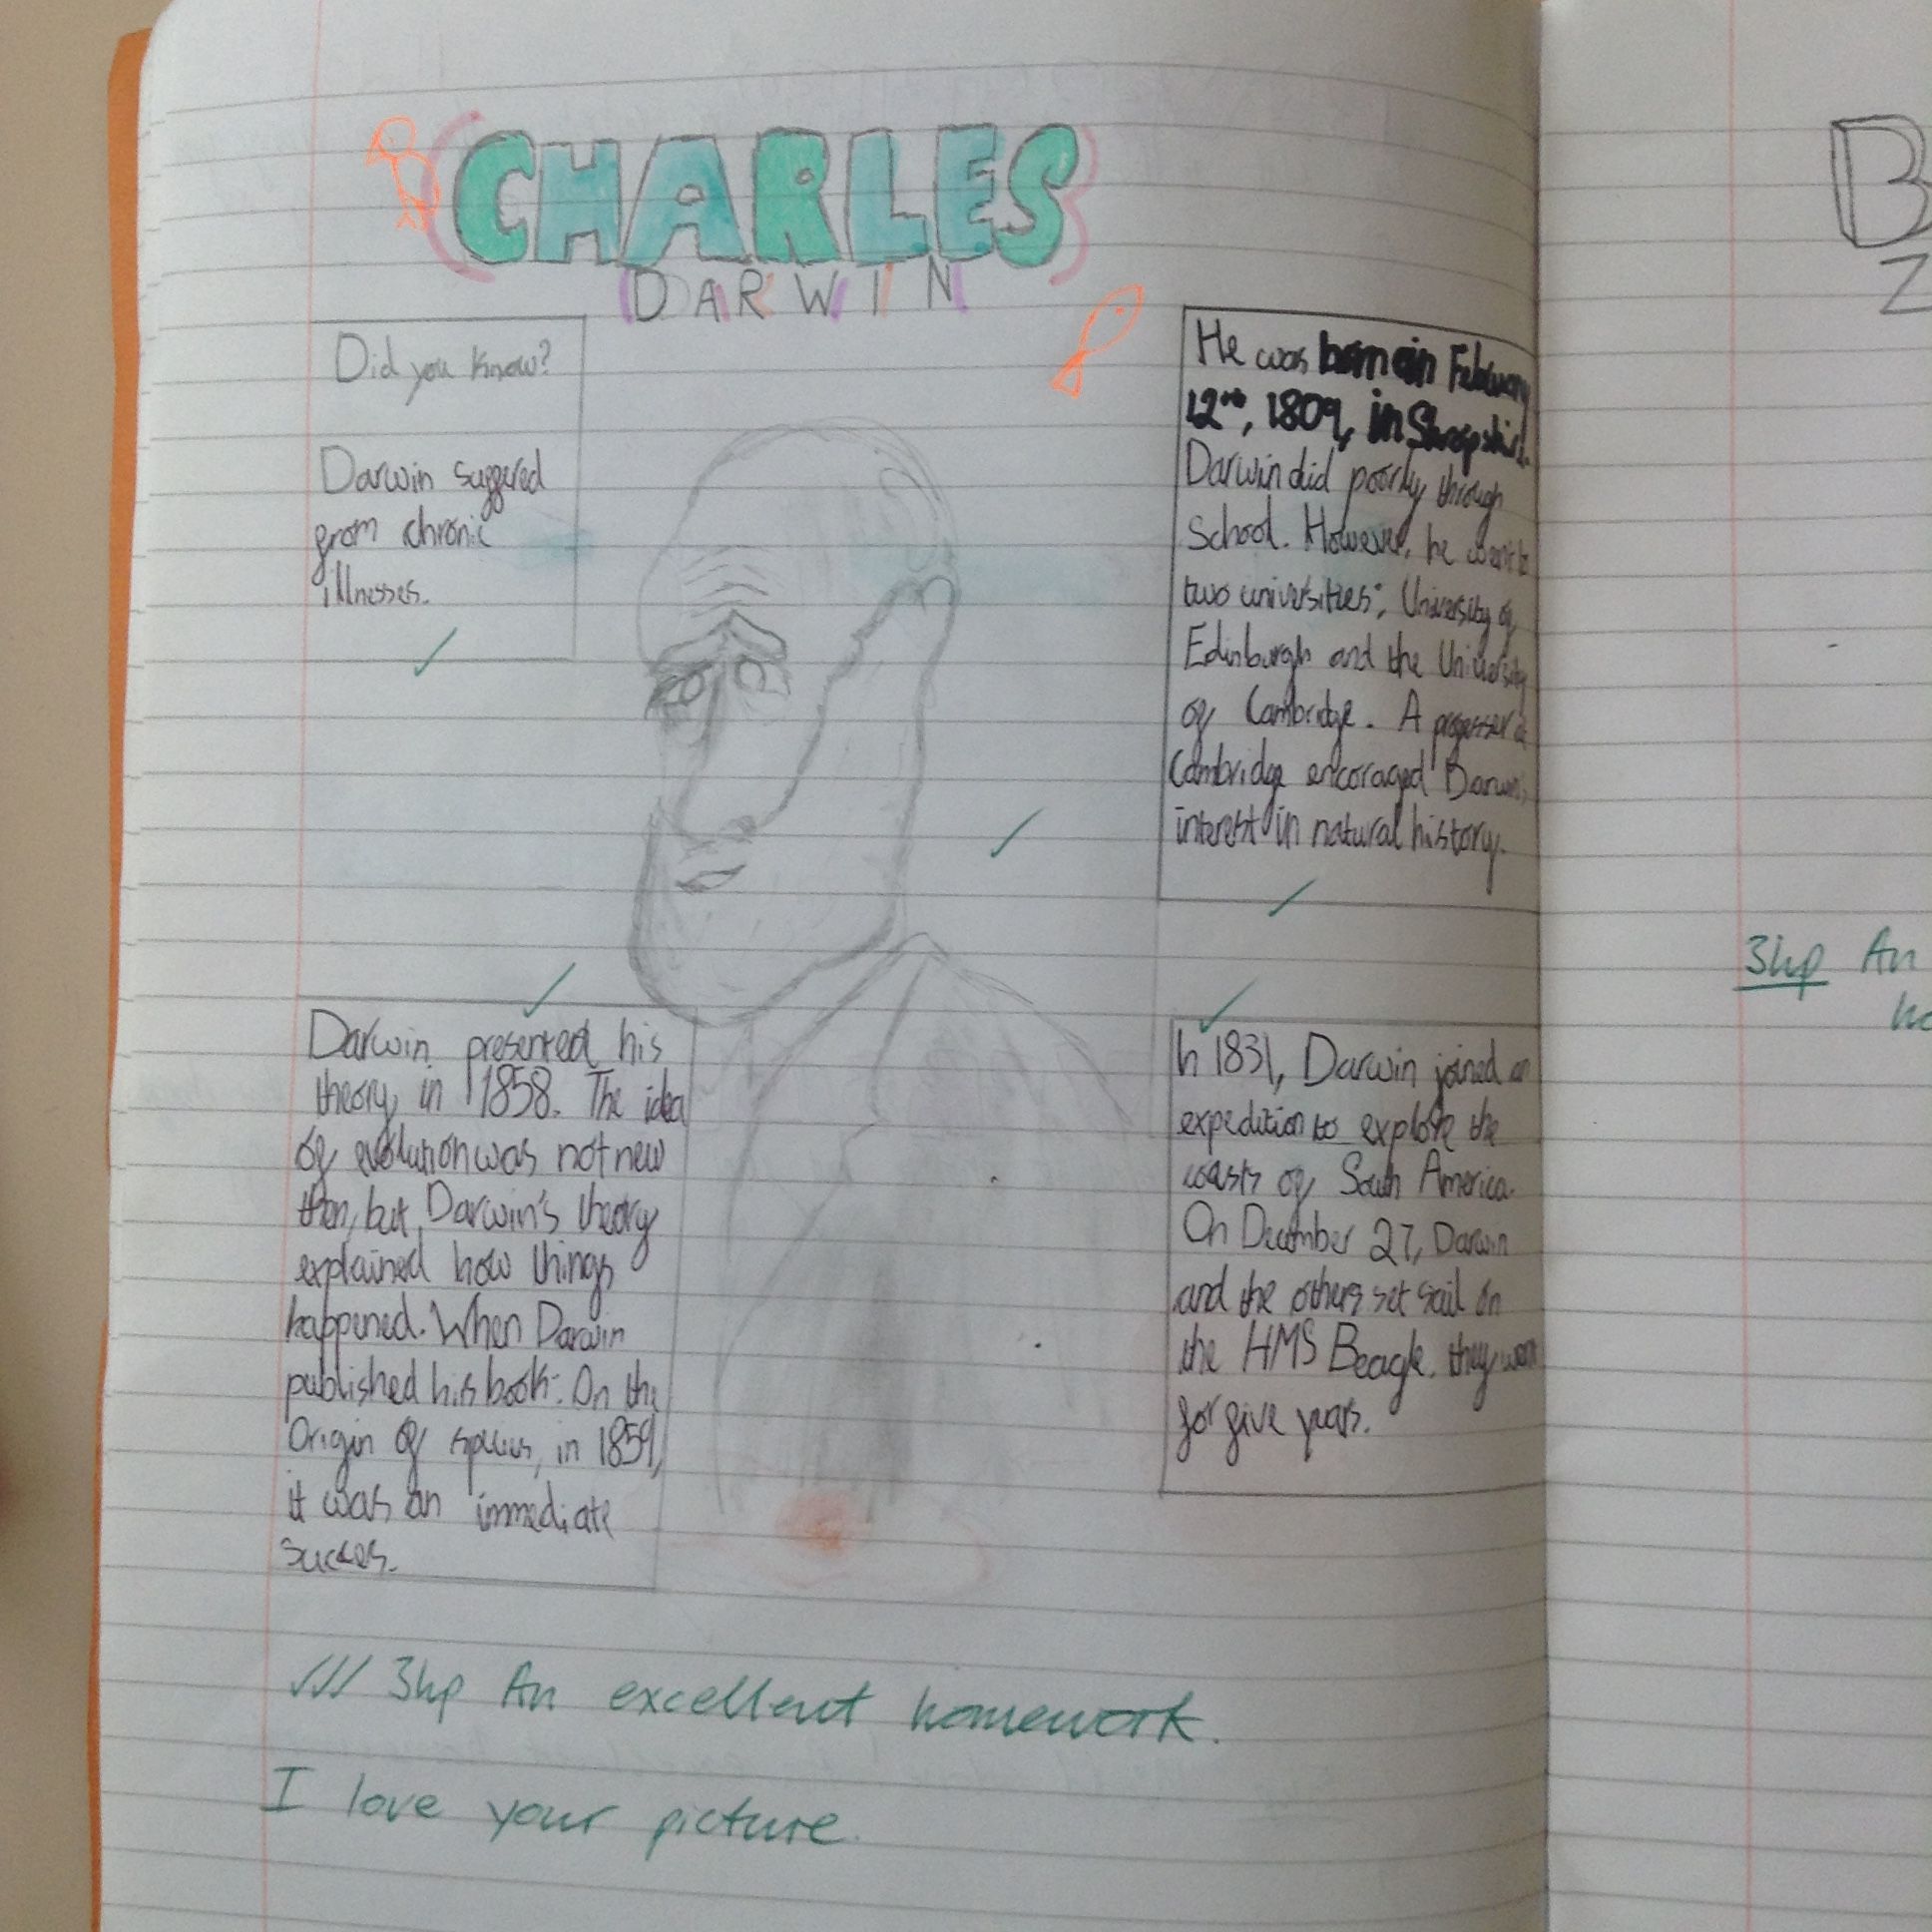 CHARLES
DARWIN
Did you know?
Darwin suffered
from chronic
illnesses.
He was born in February
12th, 1809, in Shropshire.
Darwin did poorly through
School. However, he went to
two universities; University of
Edinburgh and the University
of Cambridge. A professer at
Cambridge encoraged Darwin's
interest in natural history.
Darwin presented his
theory in 1858. The idea
of evolution was not new
then, but Darwin's theory
explained how things
happened. When Darwin
published his book: On the
Origin Of species, in 1859,
it was an immediate
success.
In 1831, Darwin joined an
expedition to explore the
coasts of South America.
On December 27, Darwin
and the others set sail on
the HMS Beagle. they went
for five years.
3hp An excellent homework.
I love your picture.
B
Z
3hp An